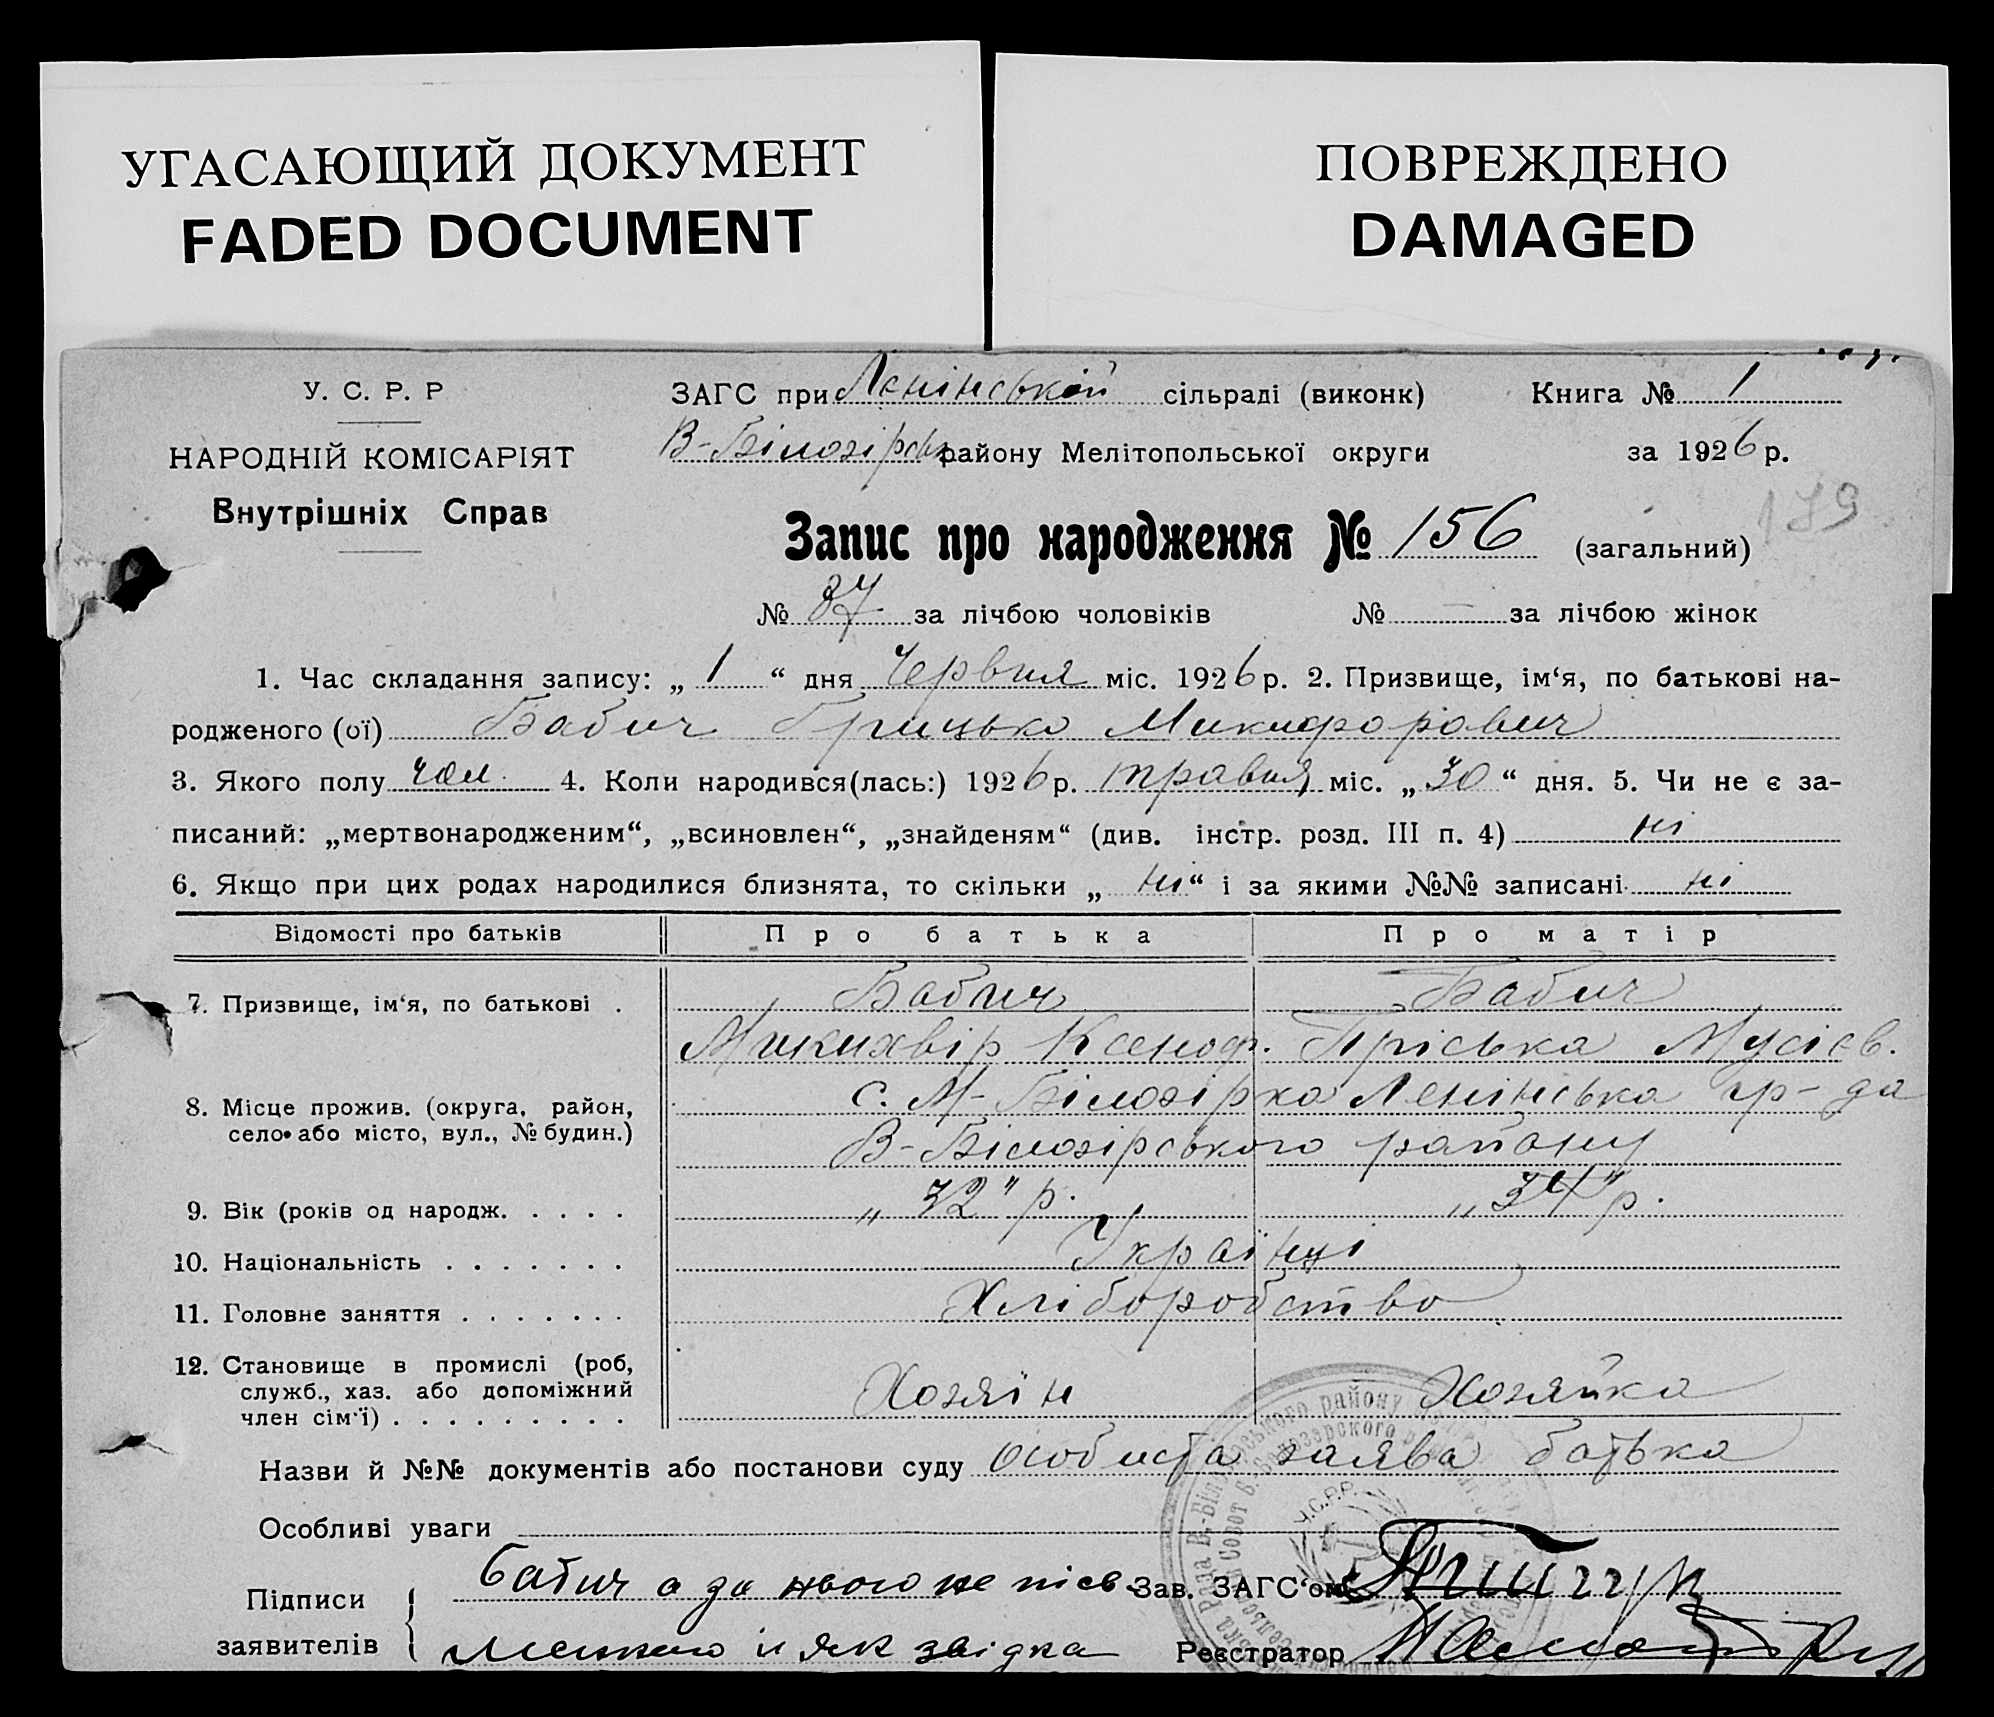 УГАСАЮЩИЙ ДОКУМЕНТ
FADED DOCUMENT
ПОВРЕЖДЕНО
DAMAGED
У. С. Р. Р
НАРОДНІЙ КОМІСАРІЯТ
Внутрішніх Справ
ЗАГС при Ленінській сільраді (виконк)
В-Білозірськ району Мелітопольської округи
Книга № 1
за 1926 р.
179
Запис про народження № 156 (загальний)
№ 87 за лічбою чоловіків № — за лічбою жінок
1. Час складання запису: „ 1 “ дня Червня міс. 1926 р. 2. Призвище, ім‘я, по батькові на-
родженого (ої) Бабич Грицько Микифорович
3. Якого полу чол. 4. Коли народився(лась:) 1926 р. травня міс. „ 30 “ дня. 5. Чи не є за-
писаний: „мертвонародженим“, „всиновлен“, „знайденям“ (див. інстр. розд. III п. 4) ні
6. Якщо при цих родах народилися близнята, то скільки „ ні “ і за якими №№ записані ні
Відомості про батьків Про батька Про матір
7. Призвище, ім‘я, по батькові . Бабич Бабич
Микихвір Ксеноф. Пріська Мусієв.
8. Місце прожив. (округа, район, село або місто, вул., № будин.) с. М-Білозірка Ленінська ср-да
В-Білозірського району
9. Вік (років од народж. . . . . „ 32 " р. „ 34 " р.
10. Національність . . . . . . . Українці
11. Головне заняття . . . . . . . Хліборобство
12. Становище в промислі (роб, служб., хаз. або допоміжний член сім‘ї) . . . . . . . . . Хозяїн Хозяйка
Назви й №№ документів або постанови суду особиста заява батька
Особливі уваги
У.С.Р.Р.
Підписи
заявителів
Бабич а за нього не писв.
й як звідка
Зав. ЗАГС‘ом
Реєстратор